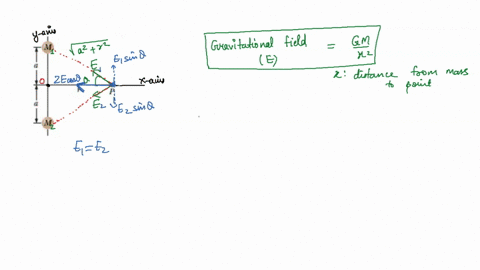 y-axis
M₁
√a²+r²
E₁ sinθ
E₁
a
O
2Ecosθ
θ
x-axis
E₂
E₂ sinθ
a
M₂
E₁=E₂
Gravitational field = GM/x²
(E)
x: distance from mass
to point